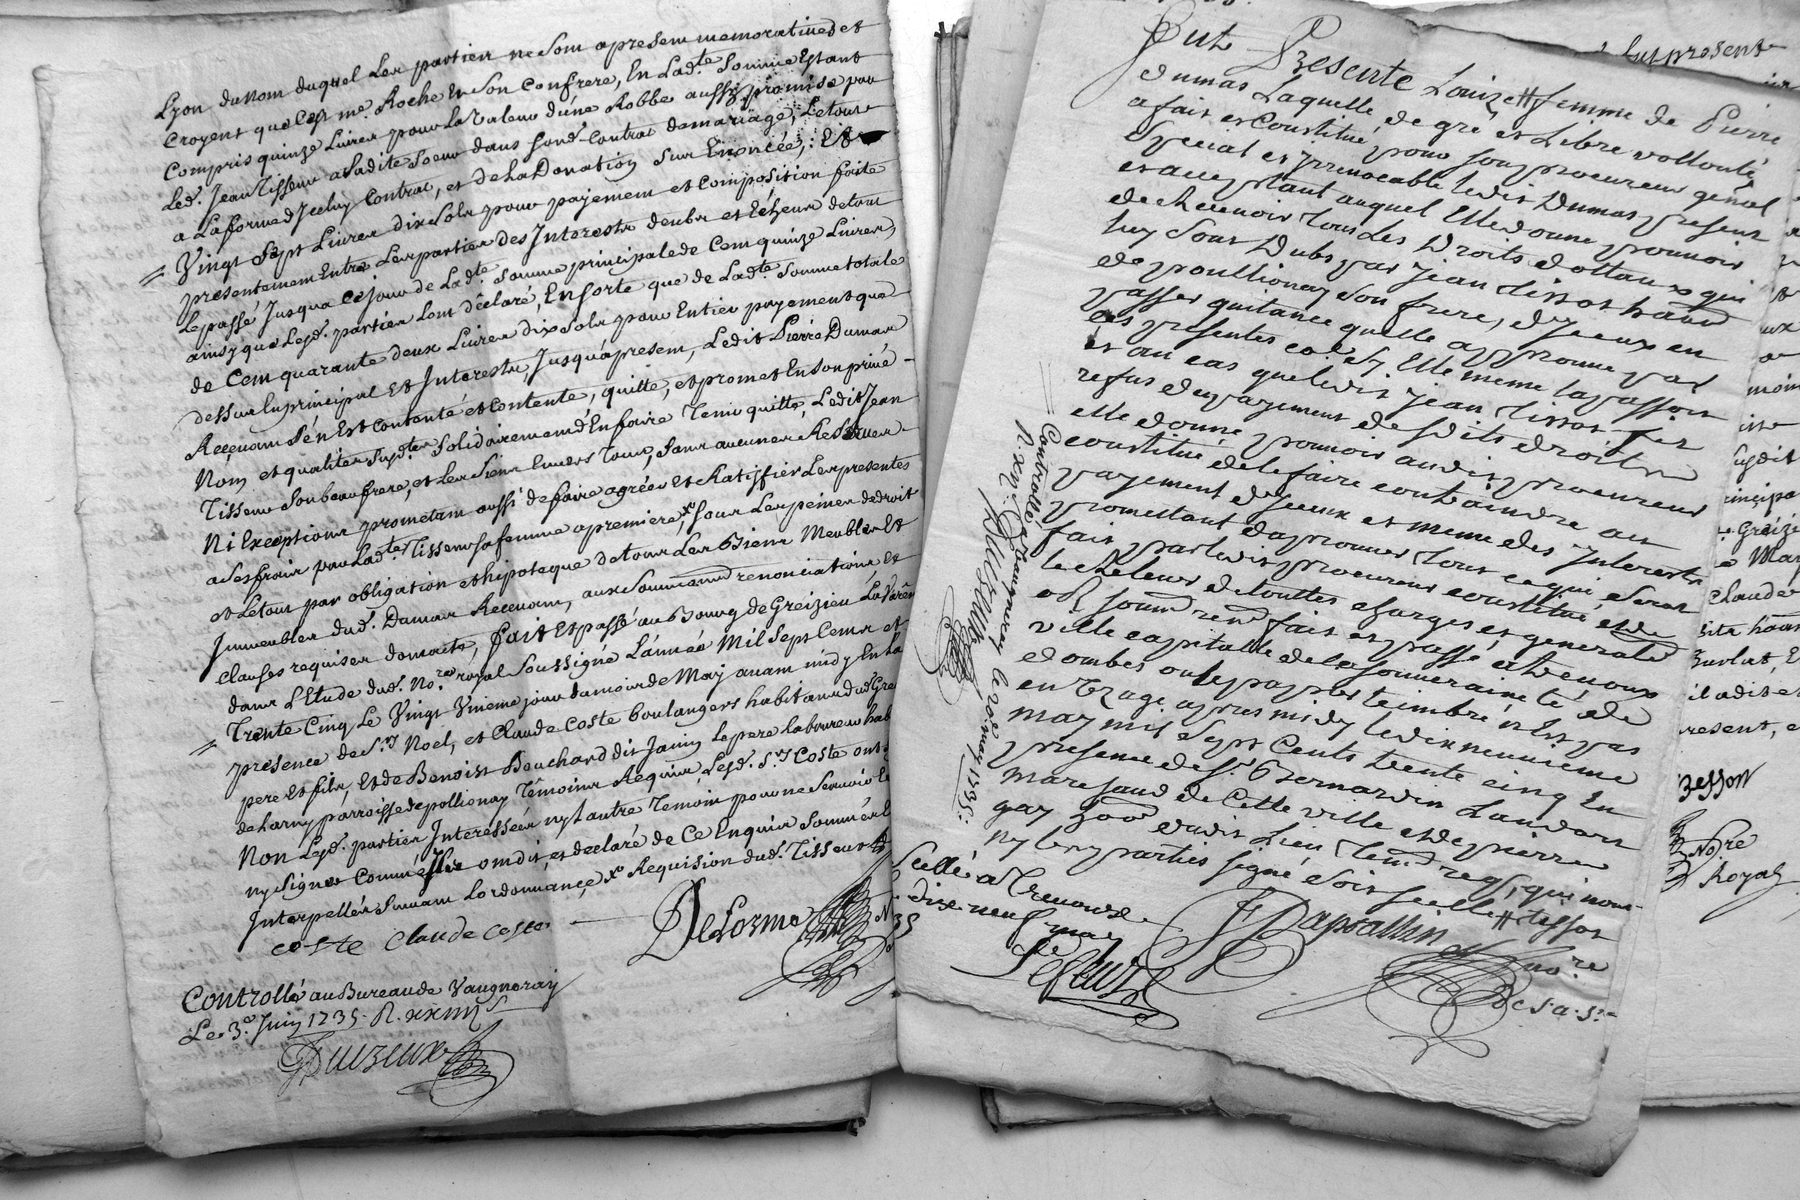 Lyon du nom duquel les parties ne som apresem memoratives et
Croyent que C'est me. Roche En Son Confrere, En Lad.te Somme Estant
Compris quinze Livres pour La Valeur d'une Robbe aussy promise par
Led. Jean Tisseur a Sadite Soeur dans Sond. Contrat de mariage, Letout
a La forme d'Jceluy Contrat, et de La Donation Sus Enoncée; Et
Vingt Sept Livres dix Sols pour payement et Composition faite
presentement Entre Les parties des Interests deubs et Echeus de tout
Le passé Jusqua Ce Jour de Lad.te Somme principale de Cent quinze Livres,
ainsy que Lesd. parties Lont déclaré, En Sorte que de Lad.te Somme totale
de Cent quarante deux Livres dix Sols pour Entier payement que
dessus En principal Et Interests Jusqu'apresent, Ledit Pierre Dumas
Recevant S'en Est Contenté et Contente, quitte, et promet En Son privé
Nom et qualités Susd.tes Solidairement d'En faire Tenir quitte, Ledit Jean
Tisseur Son beau frere, et Les Siens Envers Tous, Sans aucunes Reserves
Ni Exceptions prometant aussi de faire agréer Et Ratiffier Les presentes
a Ses frais par Lad.te Tisseur Sa femme a premiere x Sous Les peines de droit
et Le tout par obligation et hipoteque de tous Les Biens Meubles Et
Jmmeubles dud. Dumas Recevant, aux Soummond renonciations Et
Clauses requises dom acte, fait Et passé au Bourg de Greizieu La Varenne
dans L'Etude dud. No.re royal Soussigné L'année Mil Sept Cens et
Trente Cinq Le Vingt Unieme jour du mois de May avant midy En La
presence de S.rs Noel, et Claude Coste boulangers habitans dud Gre
pere Et fils, Et de Benoist Bouchard dit Janin Le pere Laboureur hab
de Larny parroisse de pollionay Témoins Requis, Lesd. S.rs Coste ont S
Non Lesd. parties Interessées ny Lautre Temoin pour ne Scavoir E
ny Signer Comme Ils ont dit, et declaré de Ce Enquis Sommés E
Interpellés Suivant Lordonnance, x Requision dud. Tisseur
coste Claude coste
Delorme
Controllé au Bureau de Vaugneray
Le 3.e Juin 1735. R. xxiiii s
Duizeux
Fut Presente Louize # femme de Pierre
dumas Laquelle de gré et Libre vollonté
a fait et Constitué pour son procureur genal
special et jrrevocable ledit Dumas present
et acceptant auquel Elle donne pouvoir
de Recevoir tous Les Droits dottaux qui
luy sont Dubs par jean tissot hand
de poullionay son frere, d'jceux en
passer quitance quelle approuve par
ces presentes co.e sy Elle meme la passoit
et au cas que ledit jean tissot fit
refus du payement desdits droits
elle donne pouvoir audit procureur
constitué de le faire contraindre au
payement d'jceux et meme des Interests
promettant dapprouver tout ce qui serat
fait par ledit procureur constitué et de
le Relever de touttes charges et generalle
obl soum renon fait et passé a trevoux
ville capitalle de la souveraineté de
dombes ou le papier timbré n'est pas
en usage apres midy le dix neuvieme
may mil sept Cents trente cinq En
presence de S.r bernardin Landart
marchand de Cette ville et de pierre
gay hand dudit Lieu temoins reqs, qui nont
ny les parties signé soit scellé # tissot
Scellé a Trevoux
dix neuf may
Controllé a Vaugneray le 20e may 1735:
Duizeux
fut presente
Sudit
Claude
resent, e
Besson
Nore
Royal